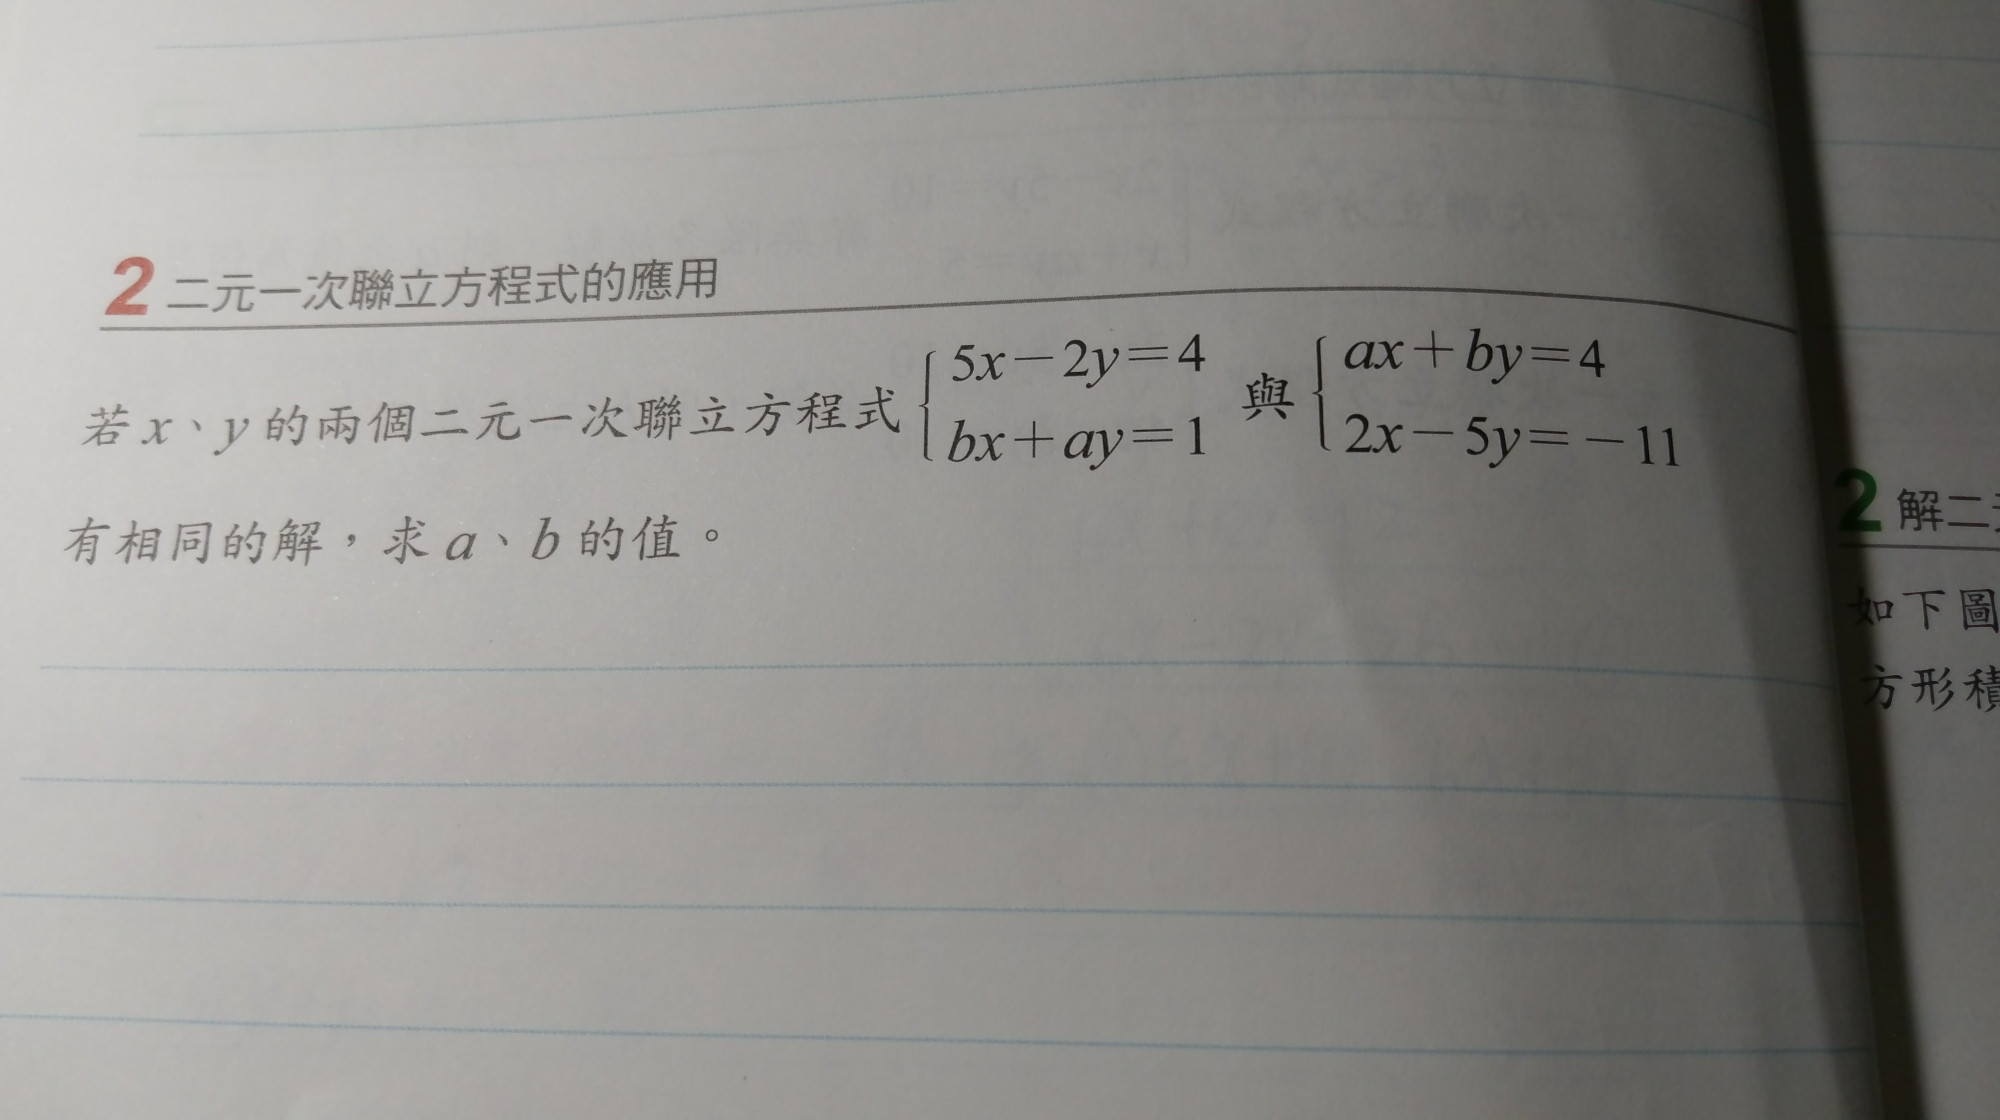 2 二元一次聯立方程式的應用
若 x、y 的兩個二元一次聯立方程式 { 5x−2y=4 與 { ax+by=4
bx+ay=1 2x−5y=−11
有相同的解，求 a、b 的值。
2 解二
如下圖
方形積